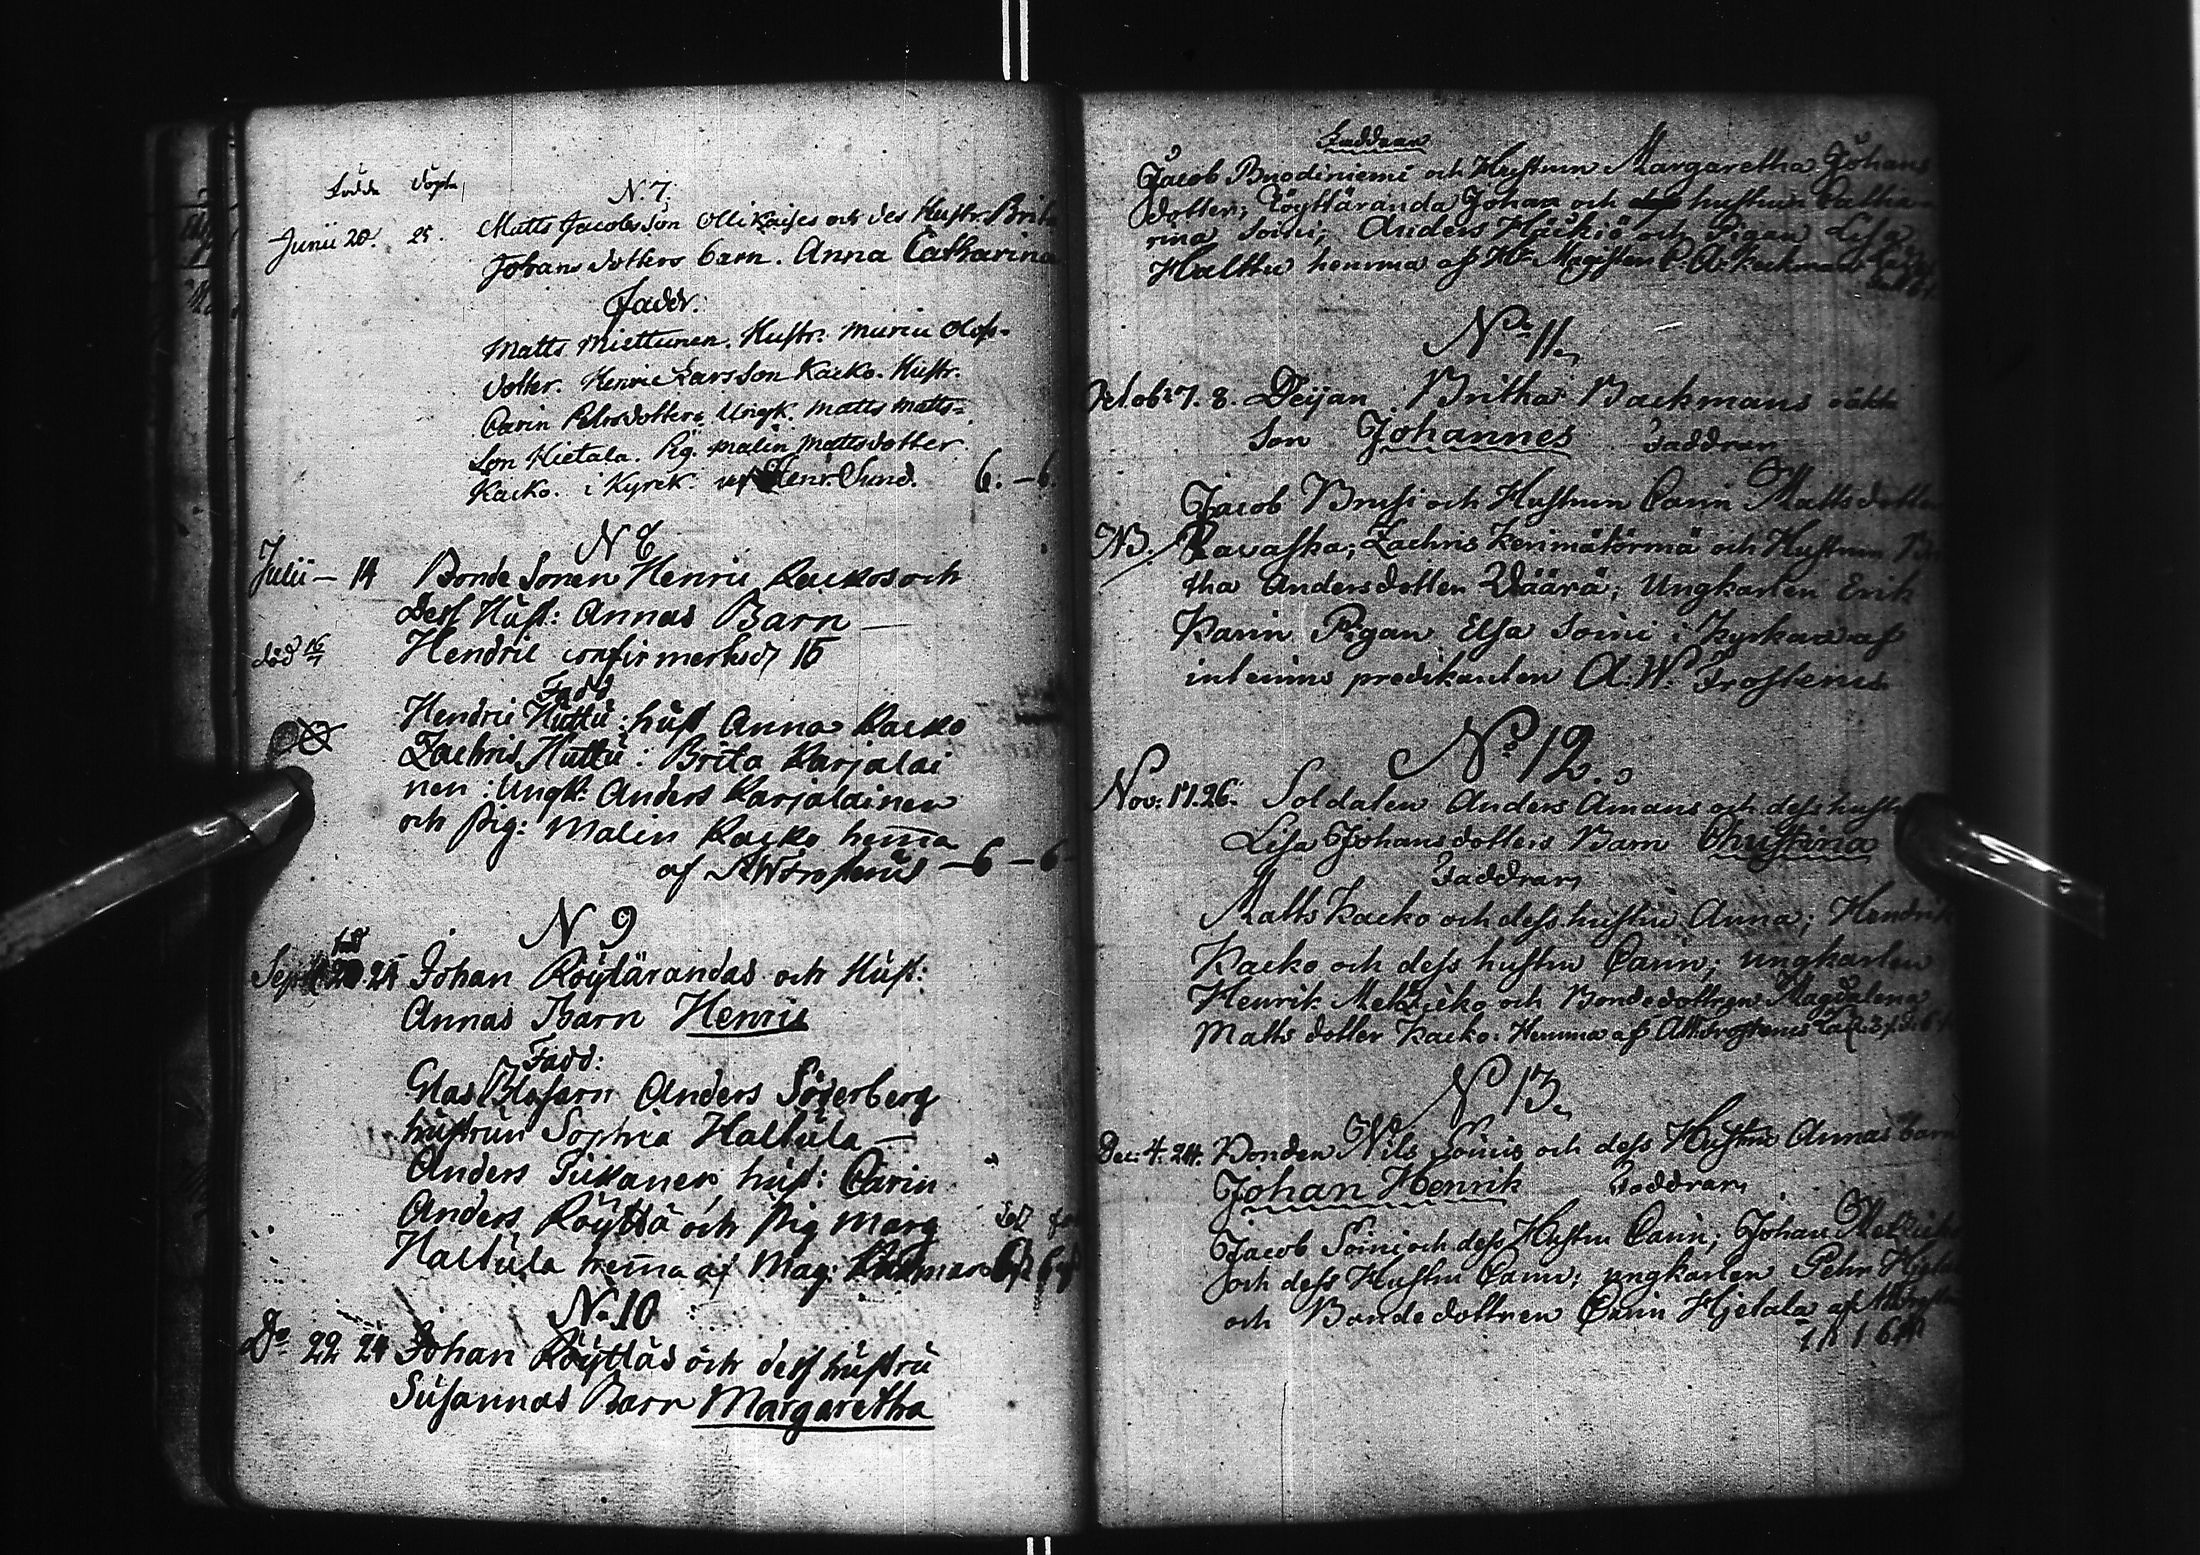 Födde Döpte
N. 7.
Junii 20. 25. Matts Jacobsson Ollikaises och des Hustr. Brita
Johansdotters barn. Anna Catharina
Fadd:
Matts Miettunen. Hustr. Maria Olofs-
dotter. Henric Larsson Kacko. Hustr.
Carin Petersdotter. Ungk. Matts Matts-
son Hietala. Pig. Malin Mattsdotter
Kacko. i Kyrck. af Henr. Sund. 6. – 6.
N 8
Julii – 14 Bonde Sonen Henric Kackos och
Dess Hust: Annas Barn —
död 16/7 Hendric confirmerts d 15
Fadd
Hendric Huttu: hust Anna Kacko
Zachris Huttu: Brita Karjalai
nen: Ungk: Anders Karjalainen
och pig: Malin Kacko hemma
af AW Frosterus – 6 – 6
N 9
Sept 20 24 Johan Röytärandas och Hust:
Annas Barn Henric
Fadd:
Glas Blasarn Anders Söderberg
hustrun Sophia Haltula —
Anders Pikanen hust: Carin
Anders Röyttä och Pig Marg
Haltula hemma af Mag:
N. 10
Do 22 24 Johan Röyttäs och dess hustru
Susannas Barn Margaretha
Faddrar
Jacob Buodiniemi och Hustrun Margaretha Johans
dotter; Röyttäranda Johan och hustrun Catha
rina Soini; Anders Hickiö och Pigan Lisa
Halttu hemma af Hr Magisten
No 11.
Octob: 7. 8. Peijan Britha Backmans oäkta
Son Johannes Faddrar
Jacob Brusi och Hustrun Carin Matts dotter
NB. Ravaska; Zachris Kerimätörmä och Hustrun Bri
tha Andersdotter Väärä; Ungkarlen Erik
Karin Pigan Elsa Soini i Kyrkan af
interims predikanten A: W: Frosterus
No 12.
Nov: 17. 26. Soldaten Anders Åmans och dess hustr
Lisa Johansdotters Barn Christina
Faddrar
Matts Kacko och dess hustru Anna; Hendrik
Kacko och dess hustru Carin; ungkarlen
Henrik Metzicko och Bondedottren Magdalena
Matts dotter Kacko. Hemma af AW Frosterus
N 13.
Dec: 4. 24. Bonden Nils Soinis och dess Hustru Annas barn
Johan Henrik Faddrar
Jacob Soini och dess Hustru Carin; Johan Metzicko
och dess Hustru Carin; ungkarlen Pehr
och Bondedottren Carin Hjetala af